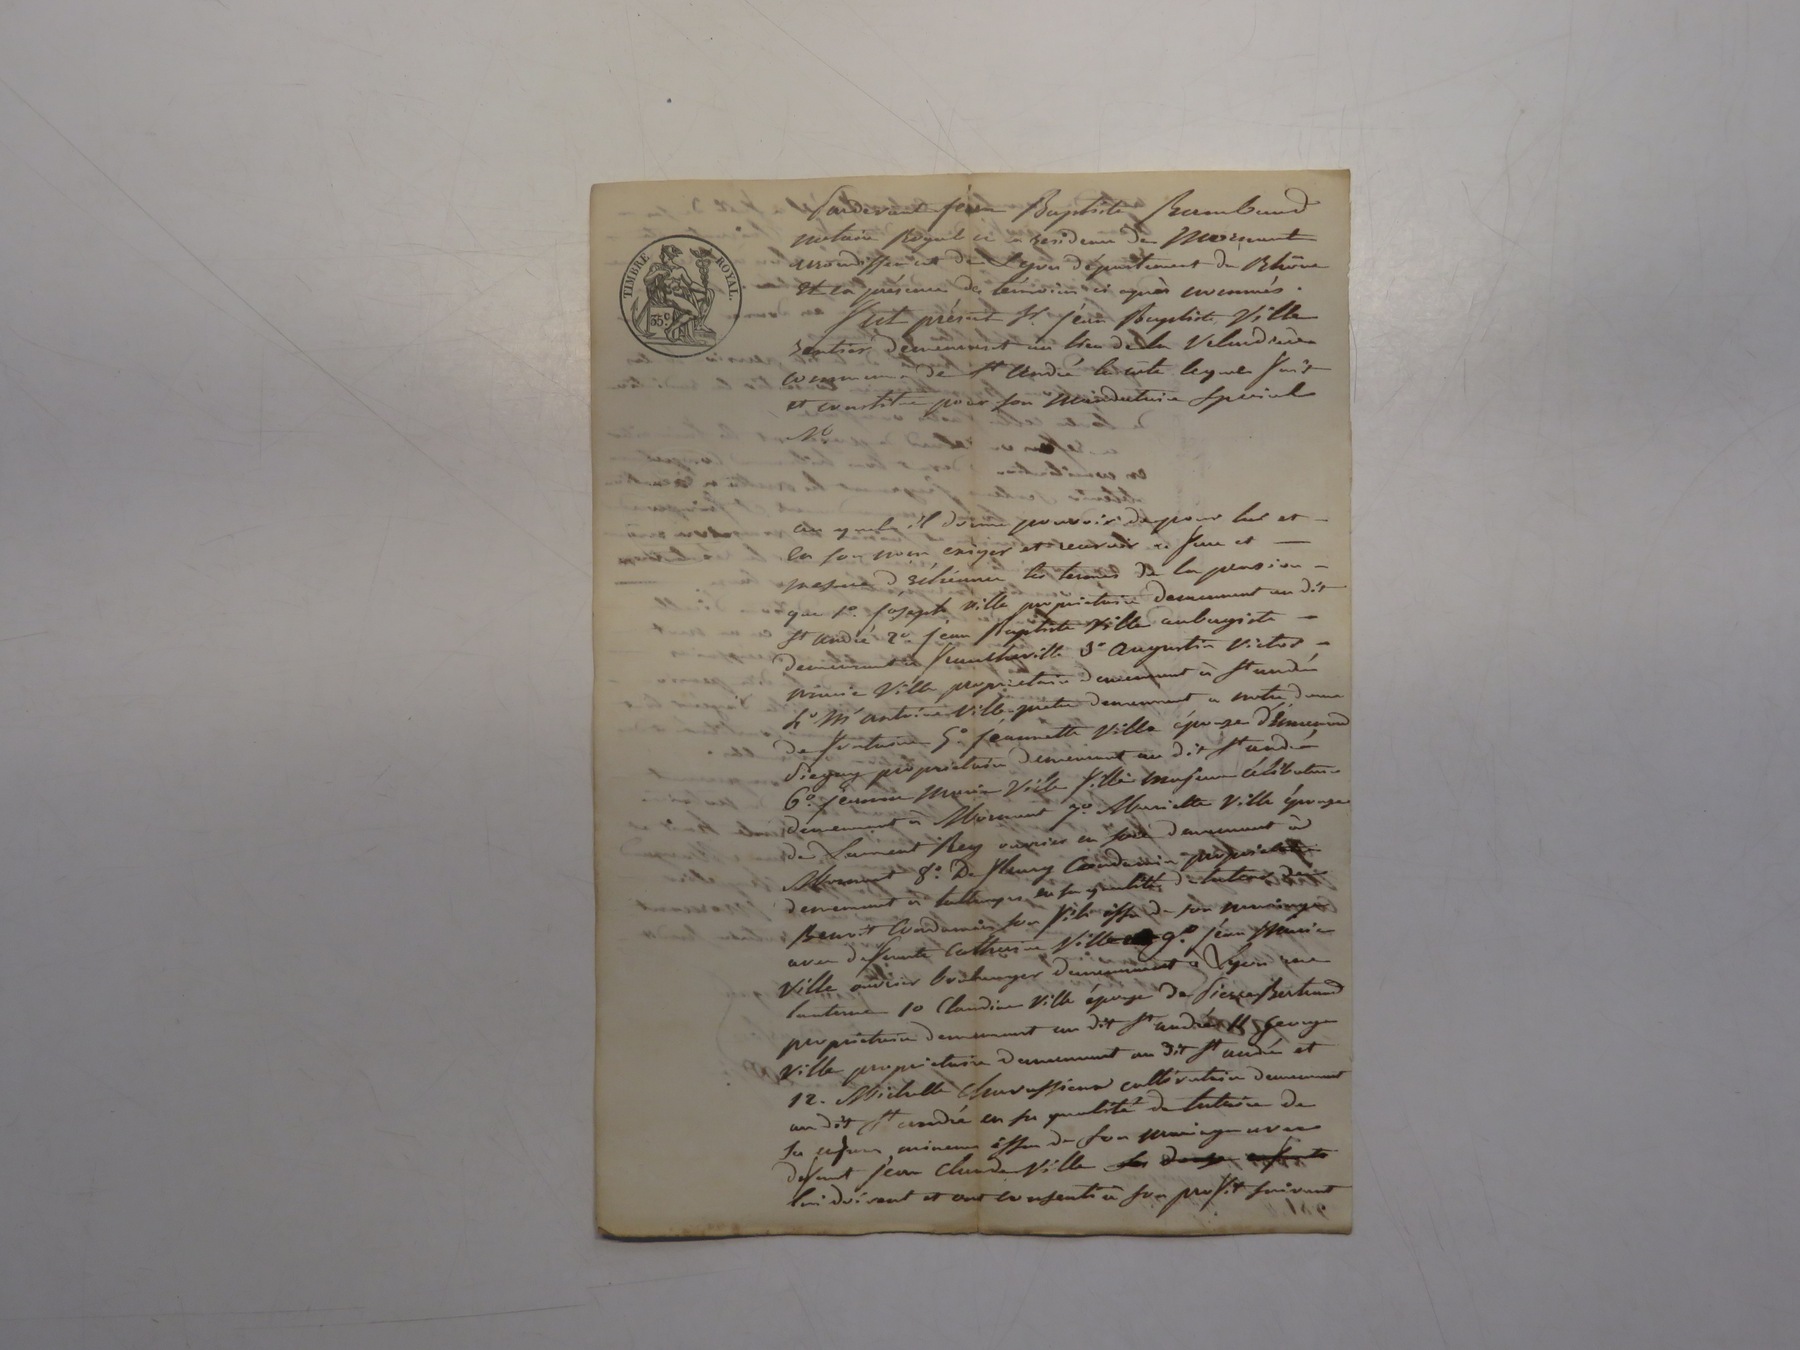 TIMBRE ROYAL.
35c
Pardevant Jean Baptiste Rambaud
notaire Royal à la residence de Mornant
arrondissement de Lyon département du Rhône
Et en présence des témoins ci après nommés.
Fut présent Sr. Jean Baptiste Ville
rentier demeurant au lieu de la
commune de St André la côte lequel fait
et constitue pour son mandataire spécial
Mr
au quel il donne pouvoir de pour lui et
en son nom exiger et recevoir à fur et
mesure d'échéance les termes de la pension
que 1o. Joseph Ville propriétaire demeurant au dit
St André 2o Jean Baptiste Ville aubergiste
demeurant à 3o Augustin Victor
Ville propriétaire demeurant à St André
4o Mr Antoine Ville prêtre demeurant à notre dame
de 5o Jeannette Ville épouse
propriétaire demeurant au dit St André
6o Jeanne Marie Ville fille majeure célibataire
demeurant à Mornant 7o Mariette Ville épouse
de Laurent Rey ouvrier en soie demeurant à
Mornant 8o. De Fleury Condamin propriétaire
demeurant à en sa qualité de tuteur de
Benoit Condamin son fils issu de son mariage
avec defunte Catherine Ville 9o Jean Marie
Ville ouvrier boulanger demeurant à Lyon rue
lanterne 10 Claudine Ville épouse de Pierre Bertrand
propriétaire demeurant au dit St André 11 George
Ville propriétaire demeurant au dit St André et
12. Michelle cultivatrice demeurant
au dit St André en sa qualité de tutrice de
sa mineure issue de son mariage avec
defunt Jean Claude Ville
lui doivent et ont consenti à son profit suivant